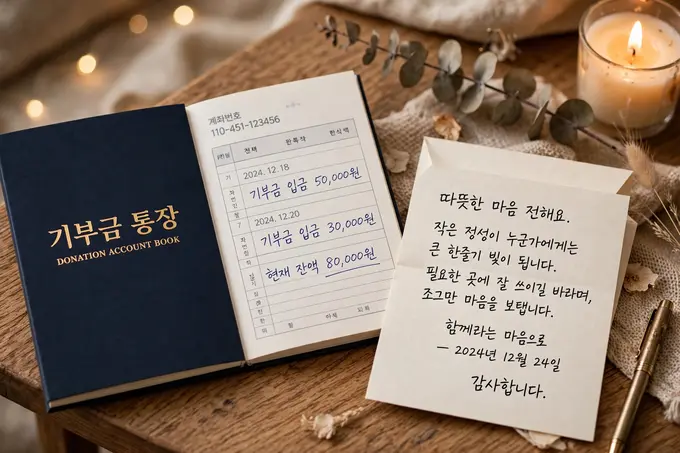 기부금 통장
DONATION ACCOUNT BOOK
계좌번호
110-451-123456
2024. 12. 18
기부금 입금 50,000원
2024. 12.20
기부금 입금 30,000원
현재 잔액 80,000원
따뜻한 마음 전해요.
작은 정성이 누군가에게는
큰 한줄기 빛이 됩니다.
필요한 곳에 잘 쓰이길 바라며,
조그만 마음을 보탭니다.
함께라는 마음으로
— 2024년 12월 24일
감사합니다.